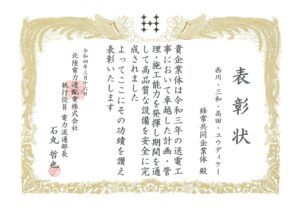 表彰状
西川・三和・高田・ユウディケー
経常共同企業体 殿
貴企業体は令和三年の送電工
事において卓越した計画・管
理・施工能力を発揮し期間を通
して高品質な設備を安全に完
成されました
よってここにその功績を讃え
表彰いたします
令和四年三月十六日
北陸電力送配電株式会社
執行役員 電力流通部長
石丸 哲也